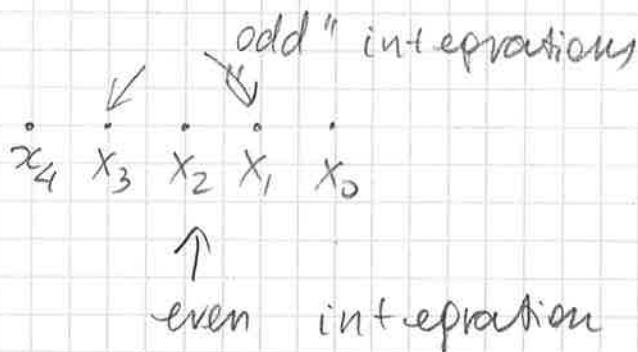 "odd" integrations
x₄ x₃ x₂ x₁ x₀
even integration